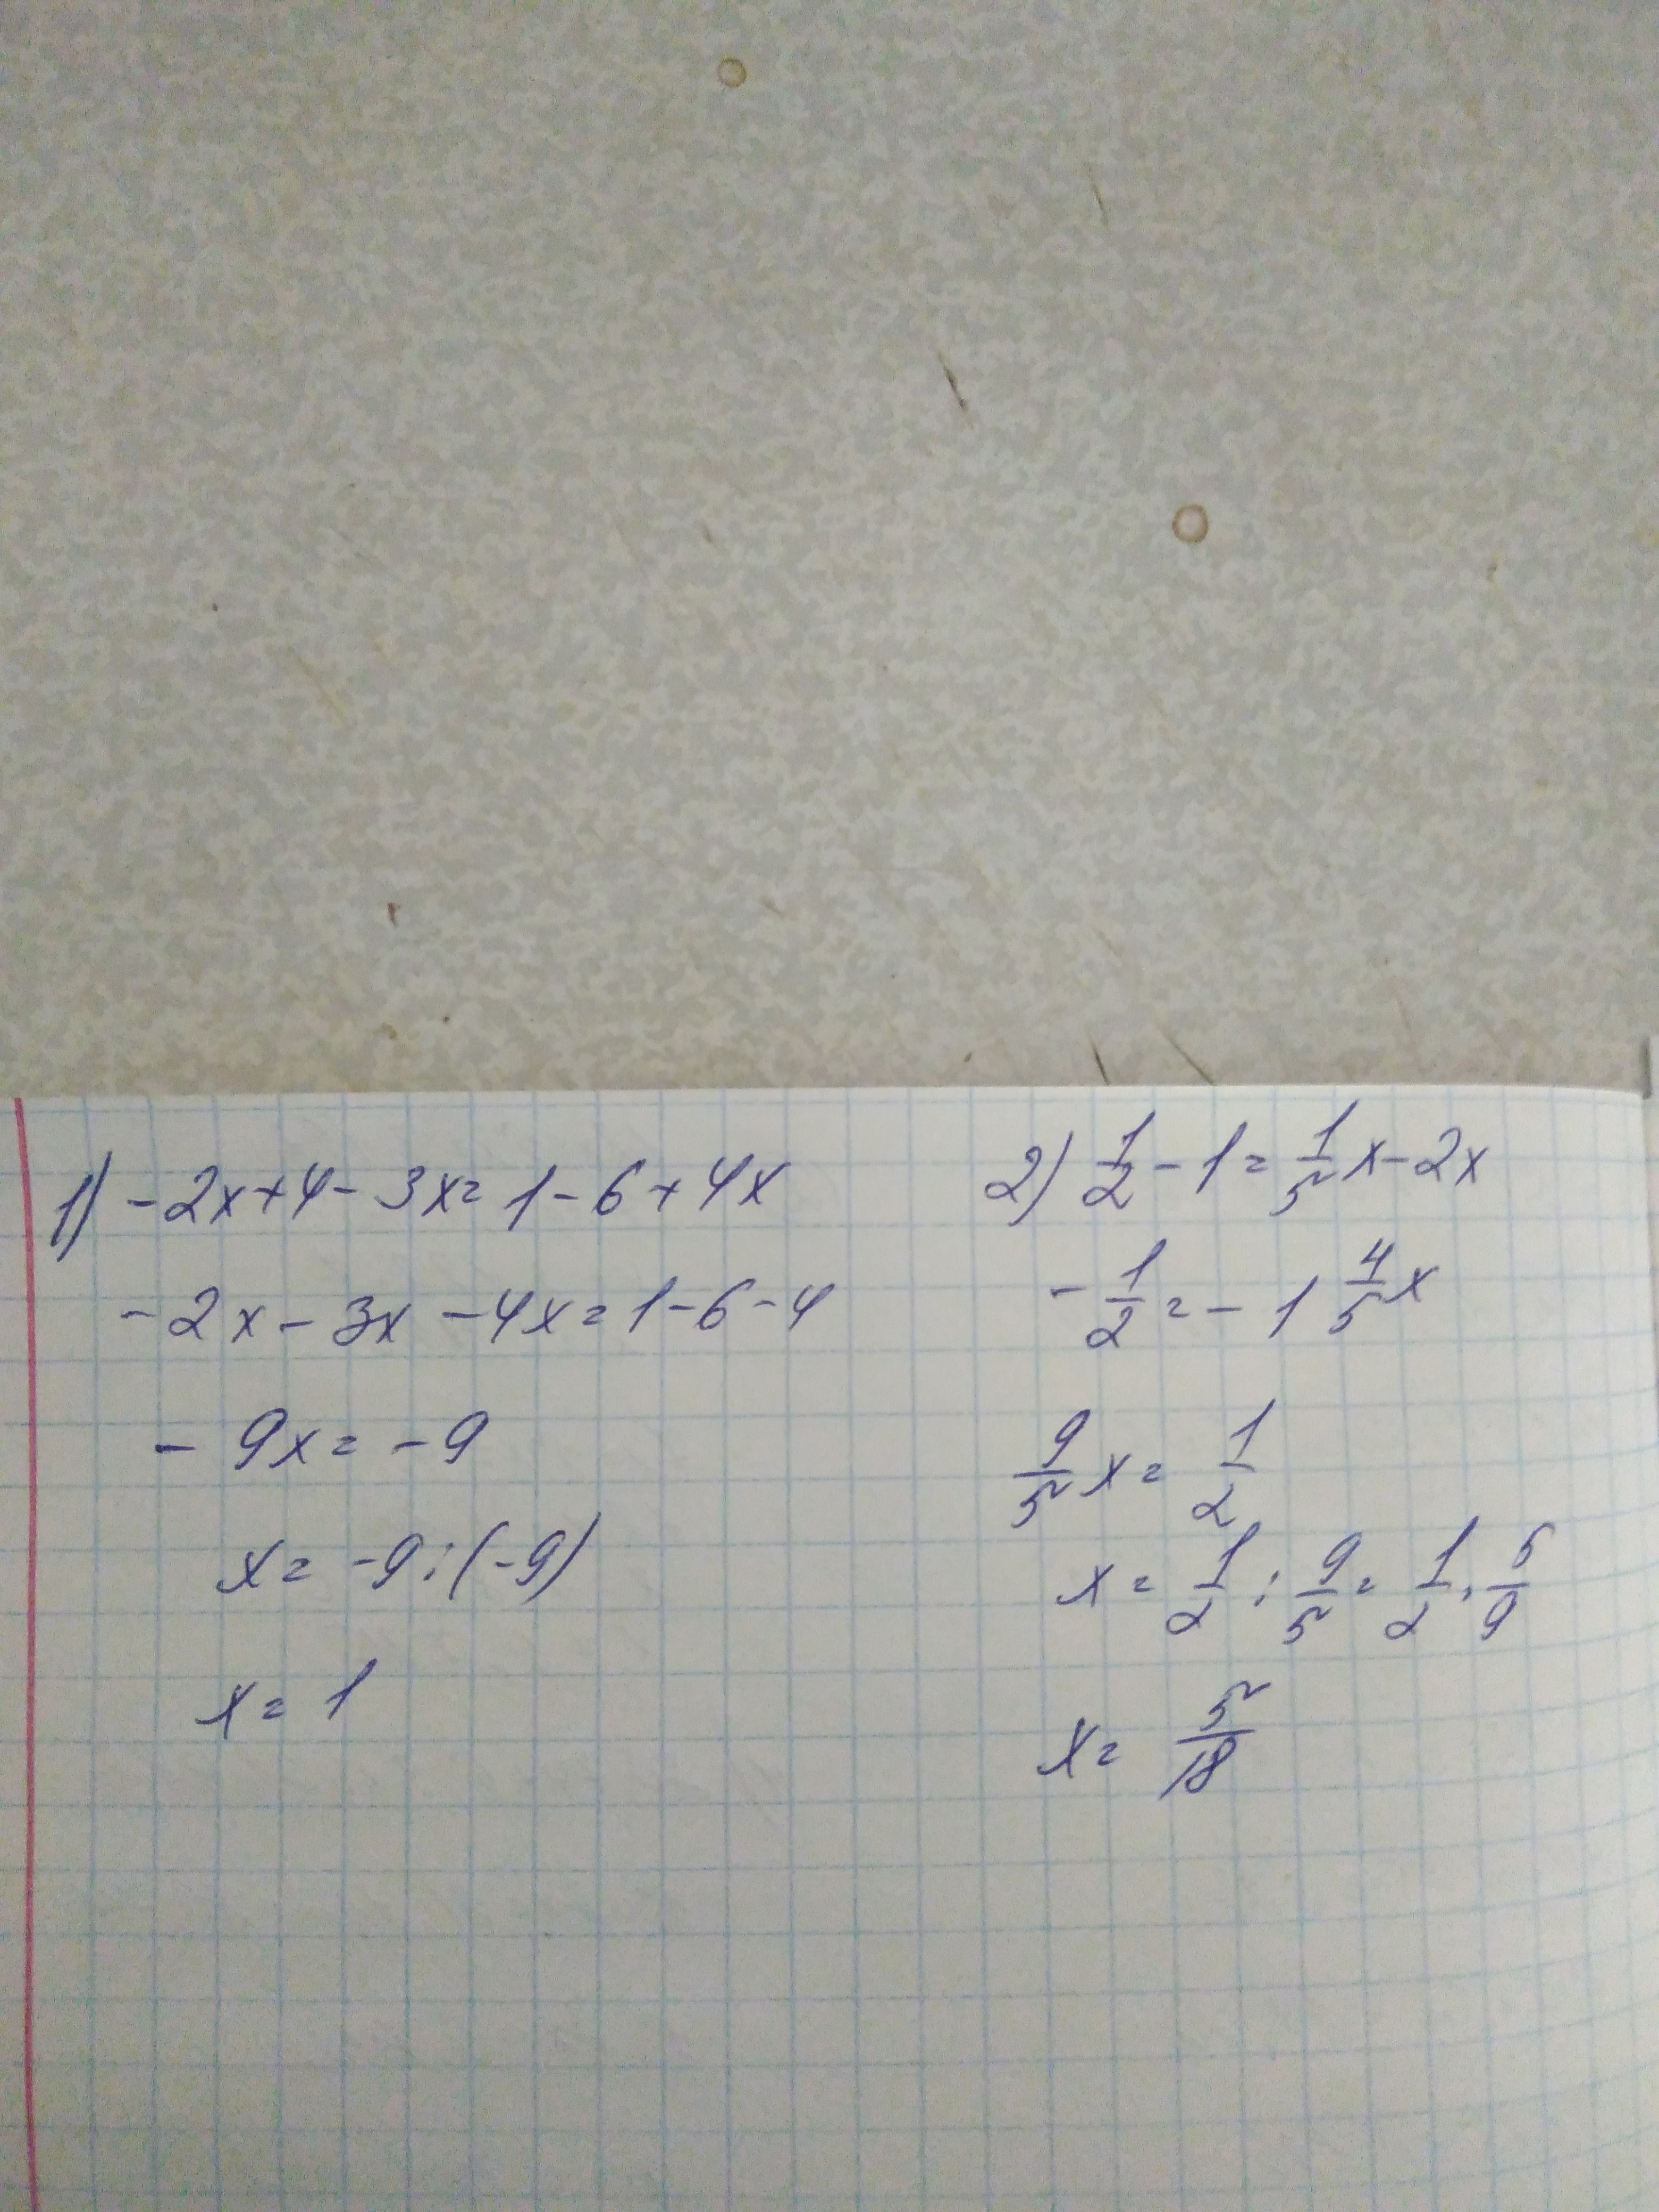 1) -2x+4-3x=1-6+4x
-2x-3x-4x=1-6-4
-9x=-9
x=-9:(-9)
x=1
2) 1/2-1=1/5x-2x
-1/2=-1 4/5x
9/5x=1/2
x=1/2:9/5=1/2·5/9
x=5/18